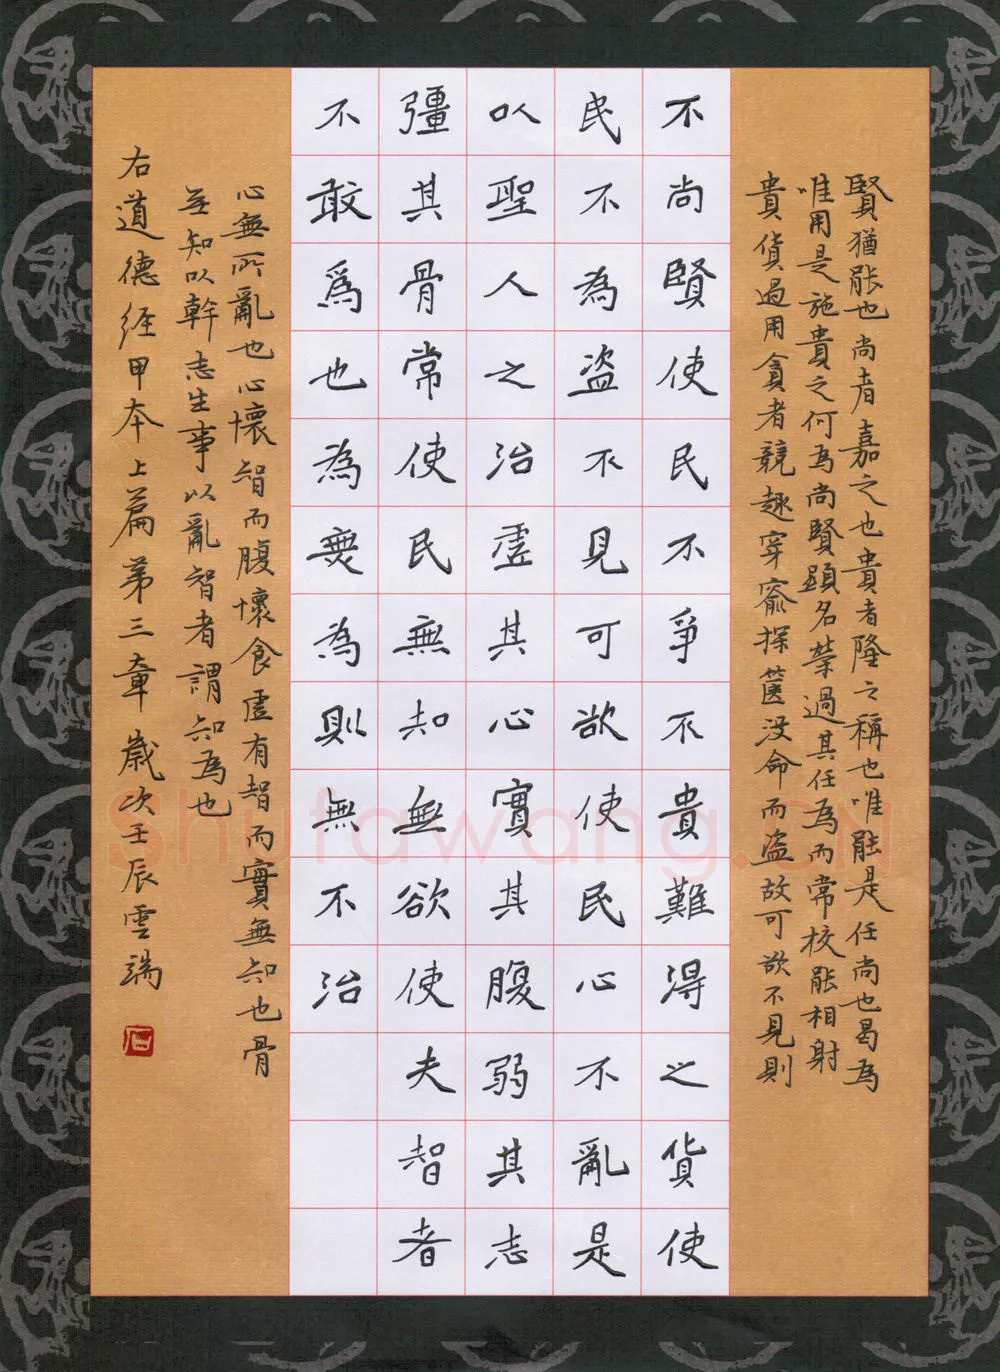 賢猶能也尚者嘉之也貴者隆之稱也唯能是任尚也曷為
唯用是施貴之何為尚賢顯名榮過其任為而常校能相射
貴貨過用貪者競趣穿窬探篋没命而盜故可欲不見則
不尚賢使民不爭不貴難得之貨使
民不為盜不見可欲使民心不亂是
以聖人之治虛其心實其腹弱其志
彊其骨常使民無知無欲使夫智者
不敢爲也為無為則無不治
心無所亂也心懷智而腹懷食虛有智而實無知也骨
無知以幹志生事以亂智者謂知為也
右道德經甲本上篇第三章歲次壬辰雲端
Shufawang.CN